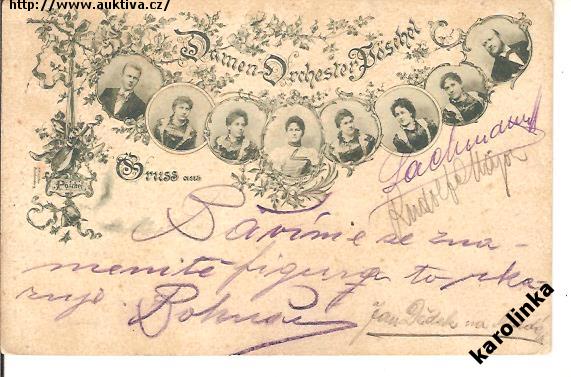 http://www.auktiva.cz/
Damen-Orchester Pöschel
Gruss aus
Lachmann
Rudolf Major
Bávímie se zna-
menitě figura to uka-
zuje. Bohuš
Jan Dědek na
karolinka